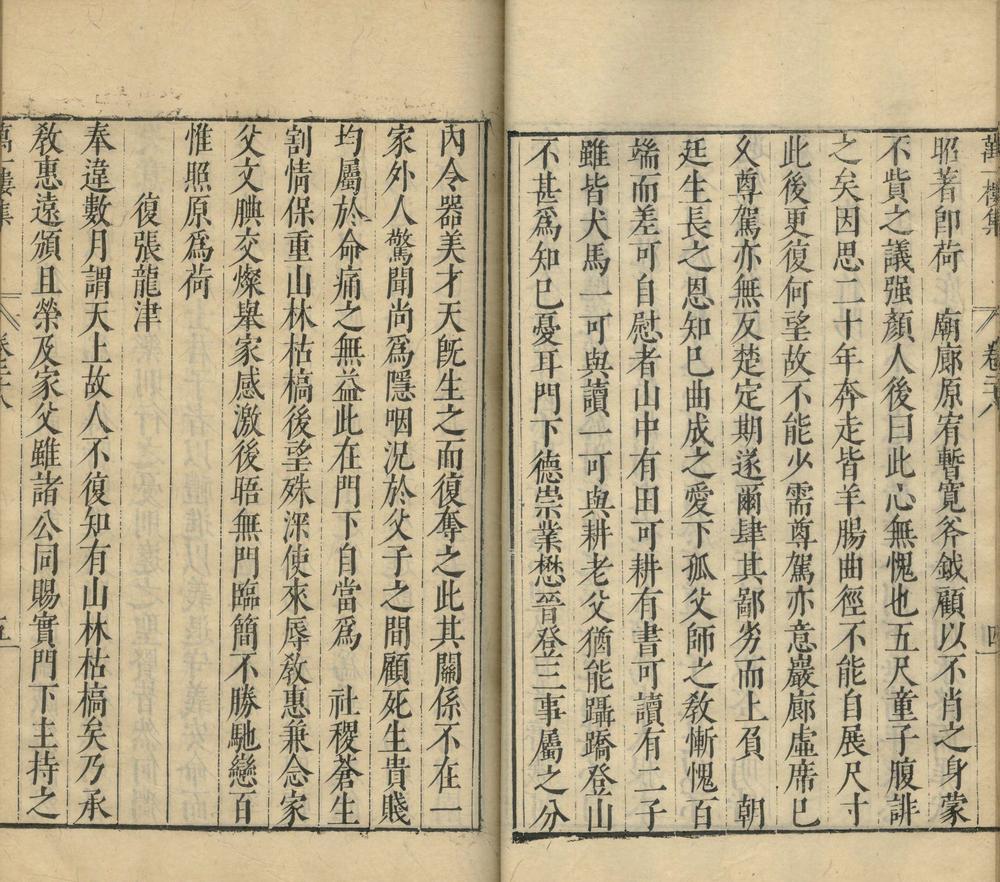 萬一樓集 卷三十八 四
昭著即荷 廟廊原宥暫寬斧鉞顧以不肖之身蒙
不貲之議强顏人後曰此心無愧也五尺童子腹誹
之矣因思二十年奔走皆羊腸曲徑不能自展尺寸
此後更復何望故不能少需尊駕亦意巖廊虛席已
久尊駕亦無反楚定期遂爾肆其鄙劣而上負 朝
廷生長之恩知已曲成之愛下孤父師之敎慚愧百
端而差可自慰者山中有田可耕有書可讀有二子
雖皆犬馬一可與讀一可與耕老父猶能躡蹻登山
不甚爲知已憂耳門下德崇業懋晉登三事屬之分
內令器美才天旣生之而復奪之此其關係不在一
家外人驚聞尚爲隱咽況於父子之間顧死生貴賤
均屬於命痛之無益此在門下自當爲 社稷蒼生
割情保重山林枯槁後望殊深使來辱敎惠兼念家
父文腆交燦舉家感激後晤無門臨簡不勝馳戀百
惟照原爲荷
復張龍津
奉違數月謂天上故人不復知有山林枯槁矣乃承
敎惠遠頒且榮及家父雖諸公同賜實門下主持之
萬一樓集 卷三十八 五